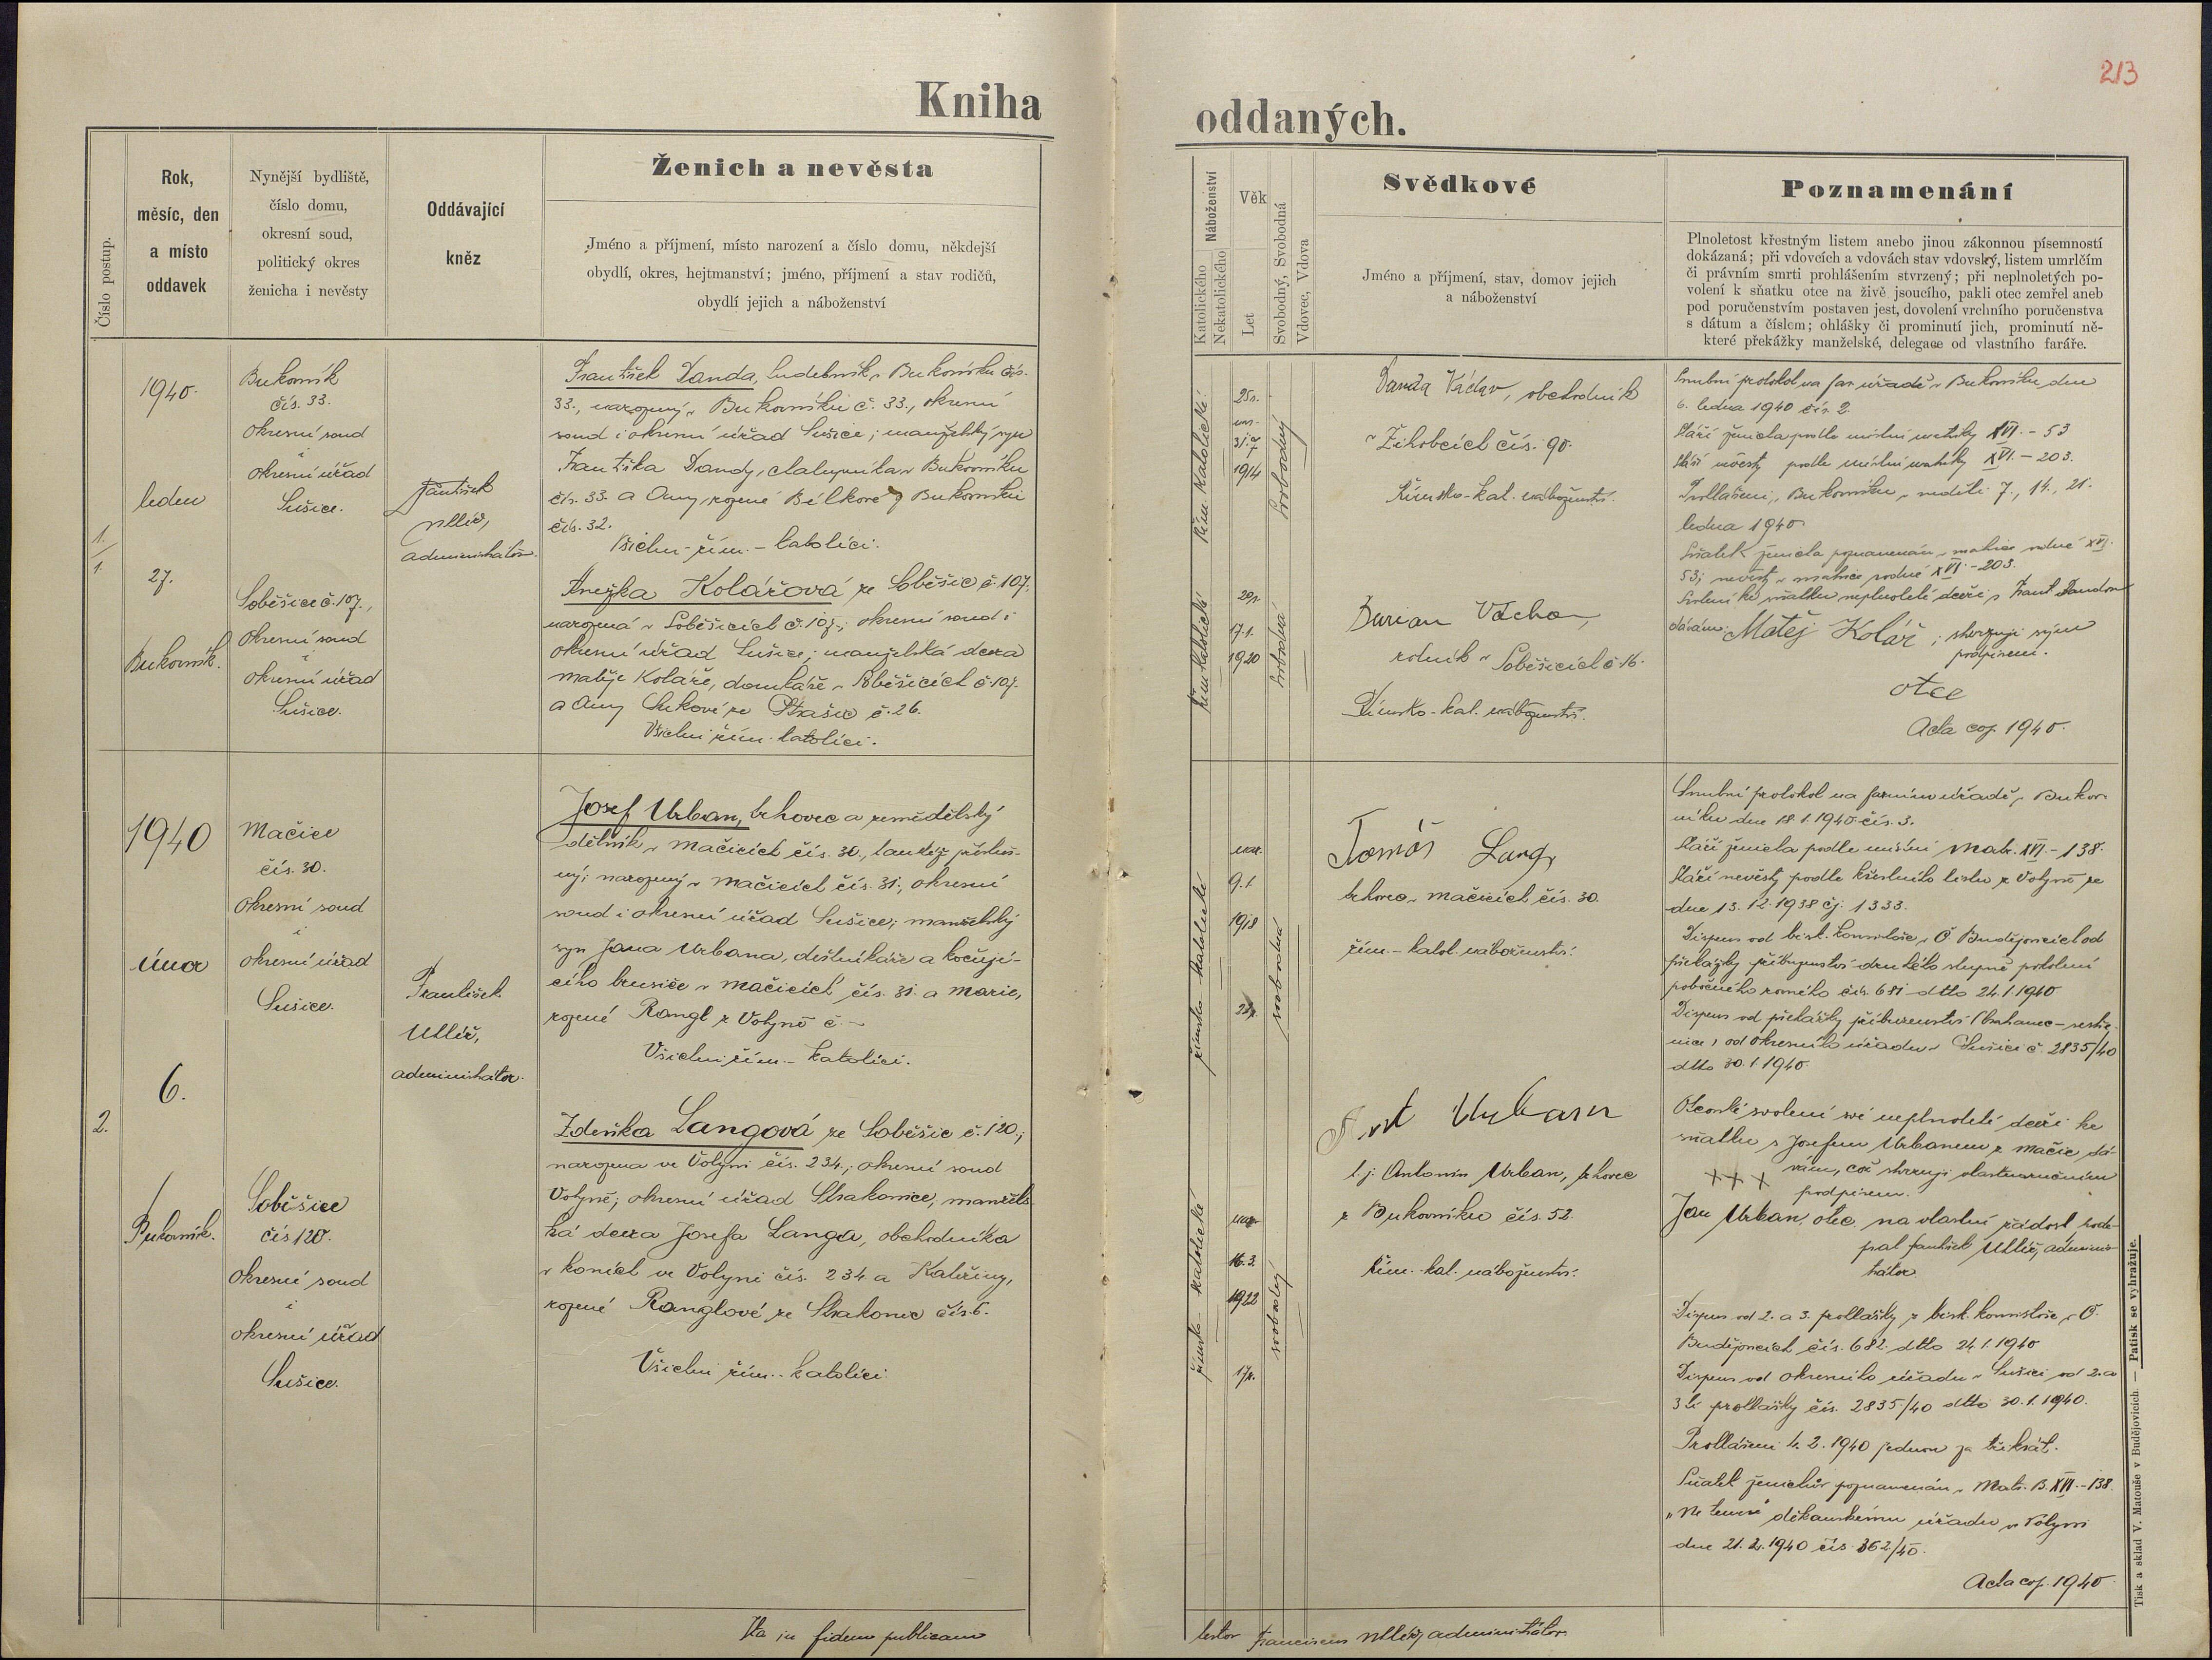 213
Kniha oddaných.
Číslo postup.
Rok,
měsíc, den
a místo
oddavek
Nynější bydliště,
číslo domu,
okresní soud,
politický okres
ženicha i nevěsty
Oddávající
kněz
Ženich a nevěsta
Jméno a příjmení, místo narození a číslo domu, někdejší
obydlí, okres, hejtmanství; jméno, příjmení a stav rodičů,
obydlí jejich a náboženství
Náboženství
Katolického
Nekatolického
Věk
Let
Svobodný, Svobodná
Vdovec, Vdova
Svědkové
Jméno a příjmení, stav, domov jejich
a náboženství
Poznamenání
Plnoletost křestným listem anebo jinou zákonnou písemností
dokázaná; při vdovcích a vdovách stav vdovský, listem umrlčím
či právním smrti prohlášením stvrzený; při neplnoletých po-
volení k sňatku otce na živě jsoucího, pakli otec zemřel aneb
pod poručenstvím postaven jest, dovolení vrchního poručenstva
s dátum a číslem; ohlášky či prominutí jich, prominutí ně-
které překážky manželské, delegace od vlastního faráře.
1.
1.
1940.
leden
27.
Bukovník.
Bukovník
čís. 33.
okresní soud
i
okresní úřad
Sušice.
Soběšice č. 107.,
okresní soud
i
okresní úřad
Sušice.
František
administrátor.
František Danda, v Bukovníku čís.
33., narozený v Bukovníku č. 33., okresní
soud i okresní úřad Sušice; manželský syn
Františka Dandy, chalupníka v Bukovníku
čís. 33. a Anny, rozené Bělkové z Bukovníku
čís. 32.
Všichni řím. - katolíci.
Anežka Kolářová ze Soběšic č. 107.
narozená v Soběšicích č. 107.; okresní soud i
okresní úřad Sušice; manželská dcera
Matěje Koláře, domkáře v Soběšicích č. 107.
a Anny ze Strašic č. 26.
Všichni řím. katolíci.
řím. katolické
25 r.
nar.
31. 7.
1914
svobodný
řím. katolické
20 r.
17. 1.
1920
svobodná
Danda Václav, obchodník
v Žihobcích čís. 90.
Římsko-kat. náboženství.
Burian Václav,
rolník v Soběšicích č. 16.
Římsko-kat. náboženství.
Snubní protokol na far. úřadě v Bukovníku dne
6. ledna 1940 čís. 2.
Stáří ženicha podle místní matriky XVI. - 53
Stáří nevěsty podle místní matriky XVI. - 203.
Prohlášeni v Bukovníku v neděli 7., 14., 21.
ledna 1940
Sňatek ženicha poznamenán v matrice rodné XVI.
53; nevěsty v matrice rodné XVI - 203.
Svolení ke sňatku neplnoleté dceři s Frant. Dandou
dávám Matěj Kolář; stvrzuji svým
podpisem.
otec
Acta cop. 1940.
2.
1940
únor
6.
Bukovník.
Mačice
čís. 30.
okresní soud
i
okresní úřad
Sušice.
Soběšice
čís 120.
okresní soud
i
okresní úřad
Sušice.
František
administrátor.
Josef Urban, trhovec a zemědělský
dělník v Mačicích čís. 30., tamtéž přísluš-
ný; narozený v Mačicích čís. 31., okresní
soud i okresní úřad Sušice; manželský
syn Jana Urbana, deštníkáře a kočují-
cího brusiče v Mačicích čís. 31. a Marie,
rozené Rangl z Volyně č. -
Všichni řím. - katolíci.
Zdeňka Langová ze Soběšic č. 120.;
narozena ve Volyni čís. 234.; okresní soud
Volyně; okresní úřad Strakonice, manžels
ká dcera Josefa Langa, obchodníka
v koních ve Volyni čís. 234 a Kateřiny,
rozené Ranglové ze Strakonic čís. 6.
Všichni řím. - katolíci.
římsko katolické
nar.
9. 1.
1918
svobodný
římsko katolické
nar.
16. 3.
1922
17 r.
Tomáš Lang,
trhovec v Mačicích čís. 30.
řím. - katol. náboženství.
Urban
t. j. Antonín Urban, trhovec
z Bukovníku čís. 52.
řím. - kat. náboženství.
Snubní protokol na farním úřadě v Bukov-
níku dne 18. 1. 1940 čís. 3.
Stáří ženicha podle místní Matr. XVI. - 138.
Stáří nevěsty podle křestního listu z Volyně ze
dne 13. 12. 1938 čj. 1333.
Dispens od bisk. konsistoře v Č. Budějovicích od
překážky příbuzenství druhého stupně pokolení
pobočného rovného čís. 681 dtto 24. 1. 1940
Dispens od překážky příbuzenství (bratranec - sestře-
nice) od okresního úřadu v Sušici č. 2835/40
dtto 30. 1. 1940.
Otcovské svolení své neplnoleté dceři ke
sňatku s Josefem Urbanem z Mačic dá-
vám, což stvrzuji vlastnoručním
+ + +
podpisem.
Jan Urban, otec, na vlastní žádost pode-
psal František adminis-
trátor
Dispens od 2. a 3. prohlášky z bisk. konsistoře v Č.
Budějovicích čís. 682 dtto 24. 1. 1940
Dispens od okresního úřadu v Sušici od 2. a
3 tí prohlášky čís. 2835/40 dtto 30. 1. 1940.
Prohlášeni 4. 2. 1940 jednou za třikrát.
Sňatek ženichův poznamenán v Matr. B. XVI. - 138
"Ne temere" děkanskému úřadu ve Volyni
dne 21. 2. 1940 čís. 362/40.
Acta cop. 1940
Ita in fidem publicam
testor Franciscus administrator.
Tisk a sklad V. Matouše v Budějovicích. — Patisk se vyhražuje.